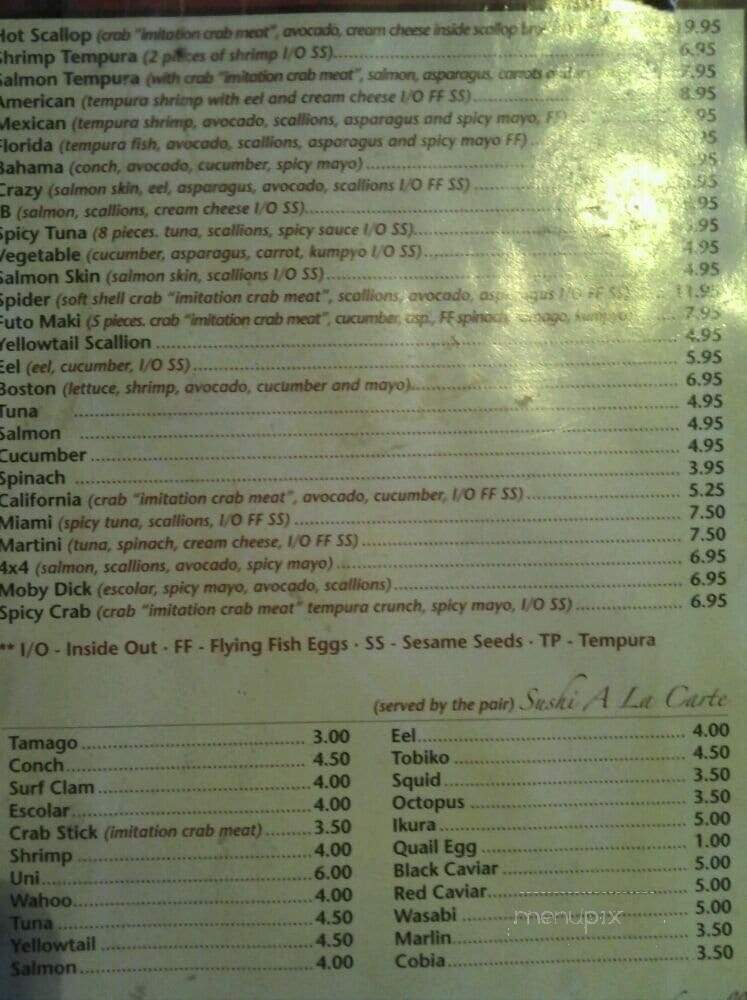 Hot Scallop (crab "imitation crab meat", avocado, cream cheese inside scallop 9.95
Shrimp Tempura (2 pieces of shrimp I/O SS) 6.95
Salmon Tempura (with crab "imitation crab meat", salmon, asparagus, carrots 7.95
American (tempura shrimp with eel and cream cheese I/O FF SS) 8.95
Mexican (tempura shrimp, avocado, scallions, asparagus and spicy mayo, .95
Florida (tempura fish, avocado, scallions, asparagus and spicy mayo FF)
Bahama (conch, avocado, cucumber, spicy mayo) .95
Crazy (salmon skin, eel, asparagus, avocado, scallions I/O FF SS) .95
JB (salmon, scallions, cream cheese I/O SS) .95
Spicy Tuna (8 pieces. tuna, scallions, spicy sauce I/O SS) .95
Vegetable (cucumber, asparagus, carrot, kumpyo I/O SS) 4.95
Salmon Skin (salmon skin, scallions I/O SS) 4.95
Spider (soft shell crab "imitation crab meat", scallions, avocado, asparagus I/O FF SS) 11.95
Futo Maki (5 pieces. crab "imitation crab meat", cucumber, asp., FF spinach, tamago, kumpyo) 7.95
Yellowtail Scallion 4.95
Eel (eel, cucumber, I/O SS) 5.95
Boston (lettuce, shrimp, avocado, cucumber and mayo) 6.95
Tuna 4.95
Salmon 4.95
Cucumber 4.95
Spinach 3.95
California (crab "imitation crab meat", avocado, cucumber, I/O FF SS) 5.25
Miami (spicy tuna, scallions, I/O FF SS) 7.50
Martini (tuna, spinach, cream cheese, I/O FF SS) 7.50
4x4 (salmon, scallions, avocado, spicy mayo) 6.95
Moby Dick (escolar, spicy mayo, avocado, scallions) 6.95
Spicy Crab (crab "imitation crab meat" tempura crunch, spicy mayo, I/O SS) 6.95
** I/O - Inside Out · FF - Flying Fish Eggs · SS - Sesame Seeds · TP - Tempura
(served by the pair) Sushi A La Carte
Tamago 3.00
Conch 4.50
Surf Clam 4.00
Escolar 4.00
Crab Stick (imitation crab meat) 3.50
Shrimp 4.00
Uni 6.00
Wahoo 4.00
Tuna 4.50
Yellowtail 4.50
Salmon 4.00
Eel 4.00
Tobiko 4.50
Squid 3.50
Octopus 3.50
Ikura 5.00
Quail Egg 1.00
Black Caviar 5.00
Red Caviar 5.00
Wasabi 5.00
Marlin 3.50
Cobia 3.50
menupix